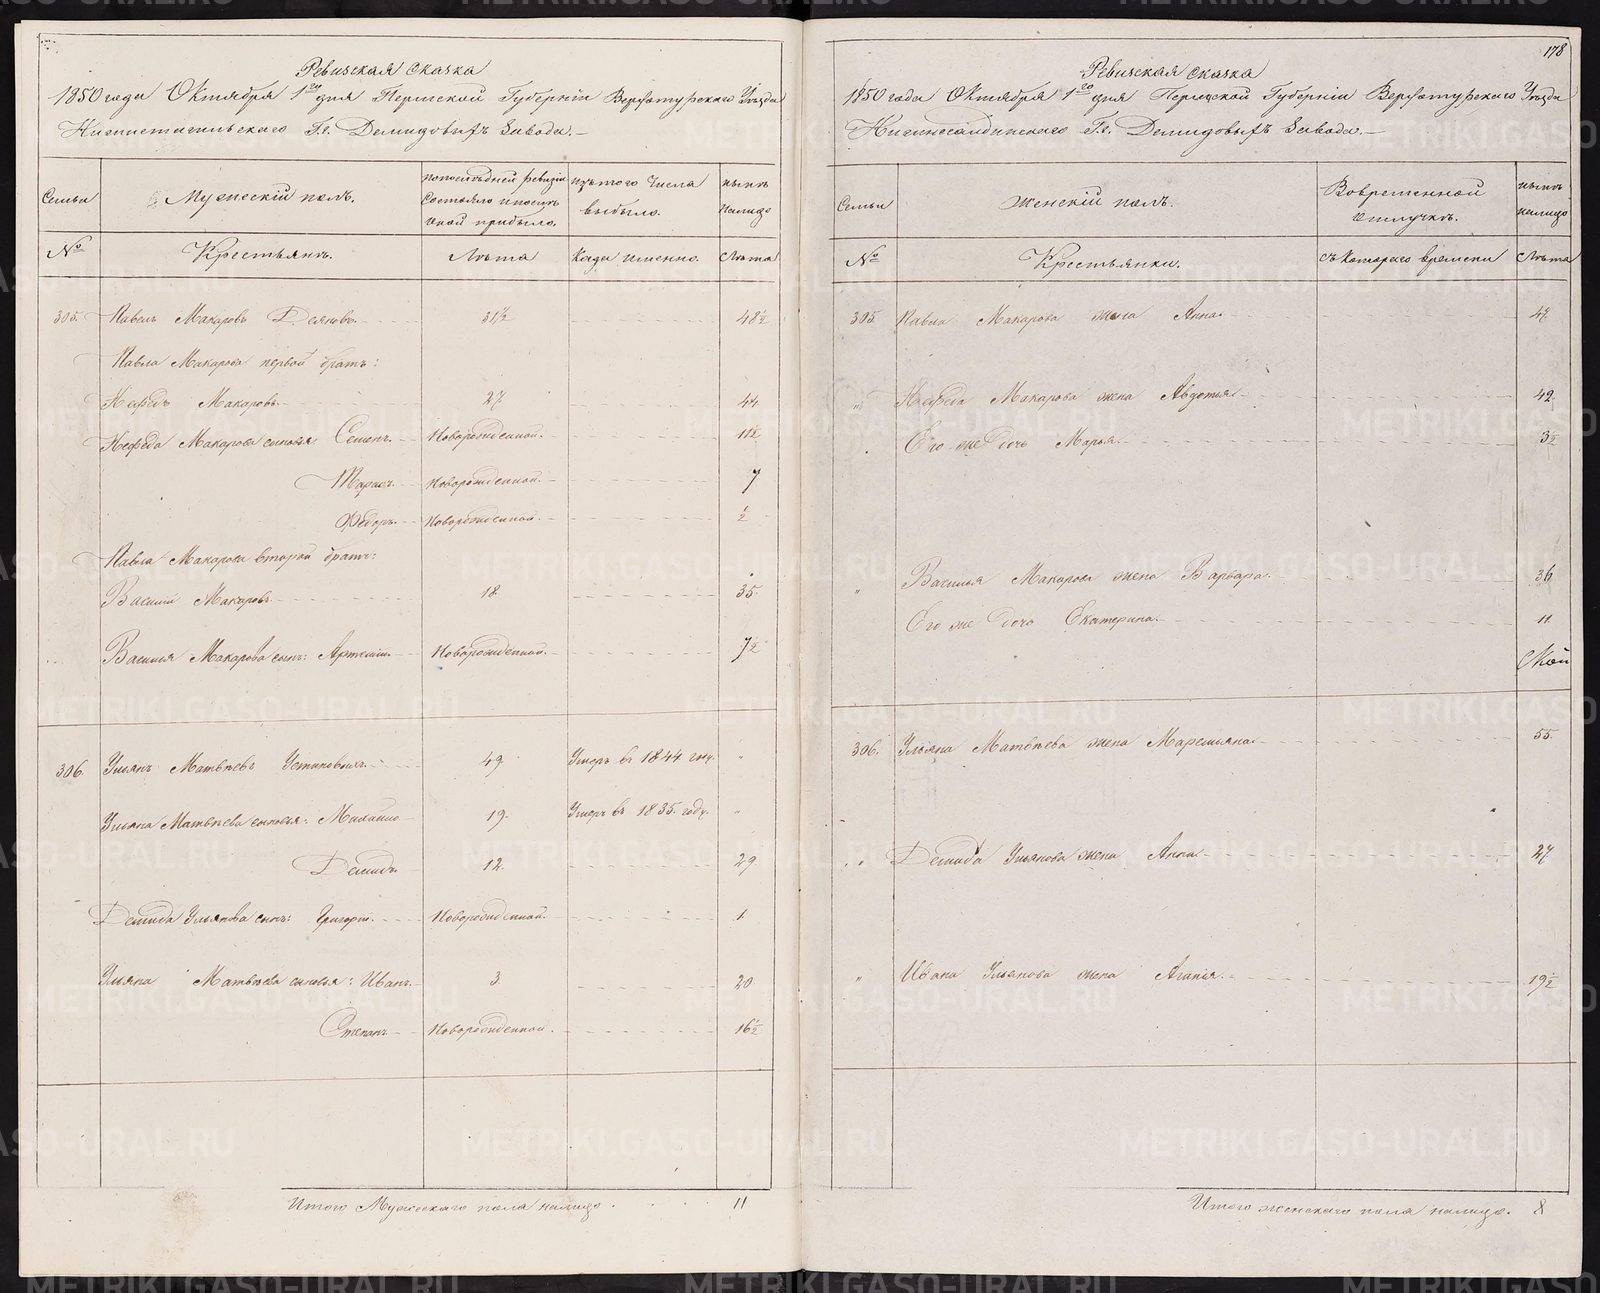 Ревизская сказка
1850 года Октября 1го дня Пермской Губернiи Верхотурскаго Уѣзда
Нижнетагильскаго Гг. Демидовыхъ Завода.
Семьи
Мужескiй полъ.
по последней ревизiи состояло и после оной прибыло.
изъ того числа выбыло.
нынѣ на лицо
№
Крестьянъ.
Лѣта
Когда именно.
Лѣта
305. Павелъ Макаровъ 31½ 48½
Павла Макарова первой братъ:
Нефедъ Макаровъ 27 44
Нефеда Макарова сыновья: Семенъ. Новорожденной. 11½
Тарасъ. Новорожденной. 7
Ѳедоръ. Новорожденной. ½
Павла Макарова второй братъ:
Василiй Макаровъ 18. 35.
Василья Макарова сынъ: Артемiй. Новорожденной. 7½
306. Ульянъ Матвѣевъ Устиновыхъ. 49. Умеръ въ 1844 году. "
Ульяна Матвѣева сыновья: Михайло 19. Умеръ въ 1835. году. "
Демидъ. 12. 29.
Демида Ульянова сынъ: Григорiй. Новорожденной. 1.
Ульяна Матвѣева сыновья: Иванъ. 3. 20.
Степанъ Новорожденной. 16½
Итого Мужескаго пола налицо. 11
178
Ревизская сказка
1850 года Октября 1го дня Пермской Губернiи Верхотурскаго Уѣзда
Нижнесалдинскаго Гг. Демидовыхъ Завода.
Семьи
Женскiй полъ.
Во временной отлучкѣ.
нынѣ налицо
№
Крестьянки.
Съ котораго времени
Лѣта
305 Павла Макарова жена Анна. 47.
" Нефеда Макарова жена Авдотья 42.
Его же дочь Марья. 3½
" Василья Макарова жена Варвара. 36
Его же дочь Екатерина. 11
306. Ульяна Матвѣева жена Маремьяна. 55.
" Демида Ульянова жена Анна 27.
" Ивана Ульянова жена Агапiя. 19½
Итого женскаго пола налицо. 8
METRIKI.GASO-URAL.RU